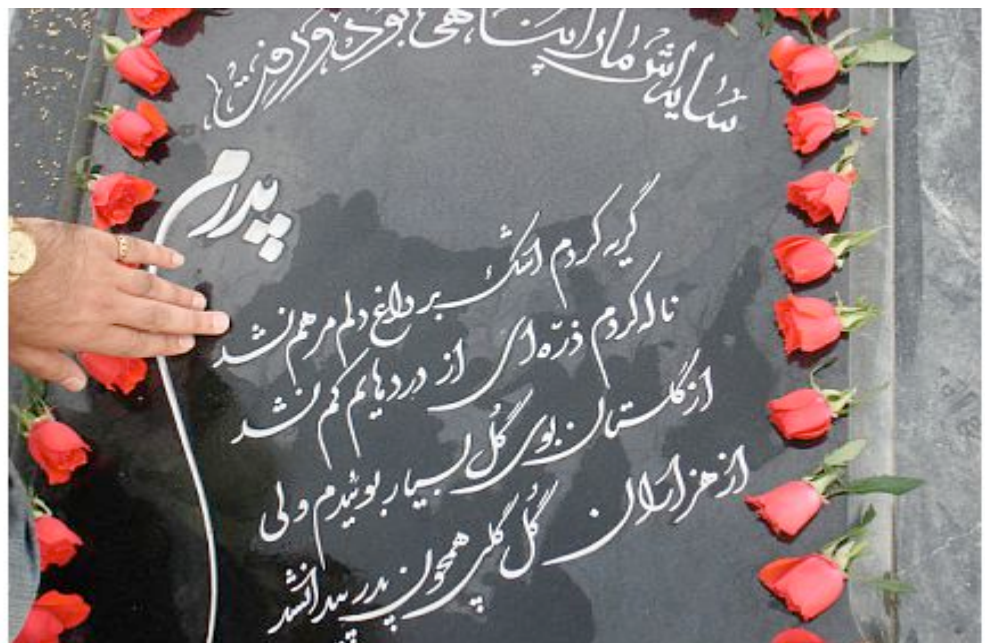 سایه‌اش ما را پناهی بود و رفت
پدرم
گریه کردم اشک بر داغ دلم مرهم نشد
ناله کردم ذرّه‌ای از دردهایم کم نشد
از گلستان بوی گُل بسیار بوئیدم ولی
از هزاران گُل گلی همچون پدر پیدا نشد